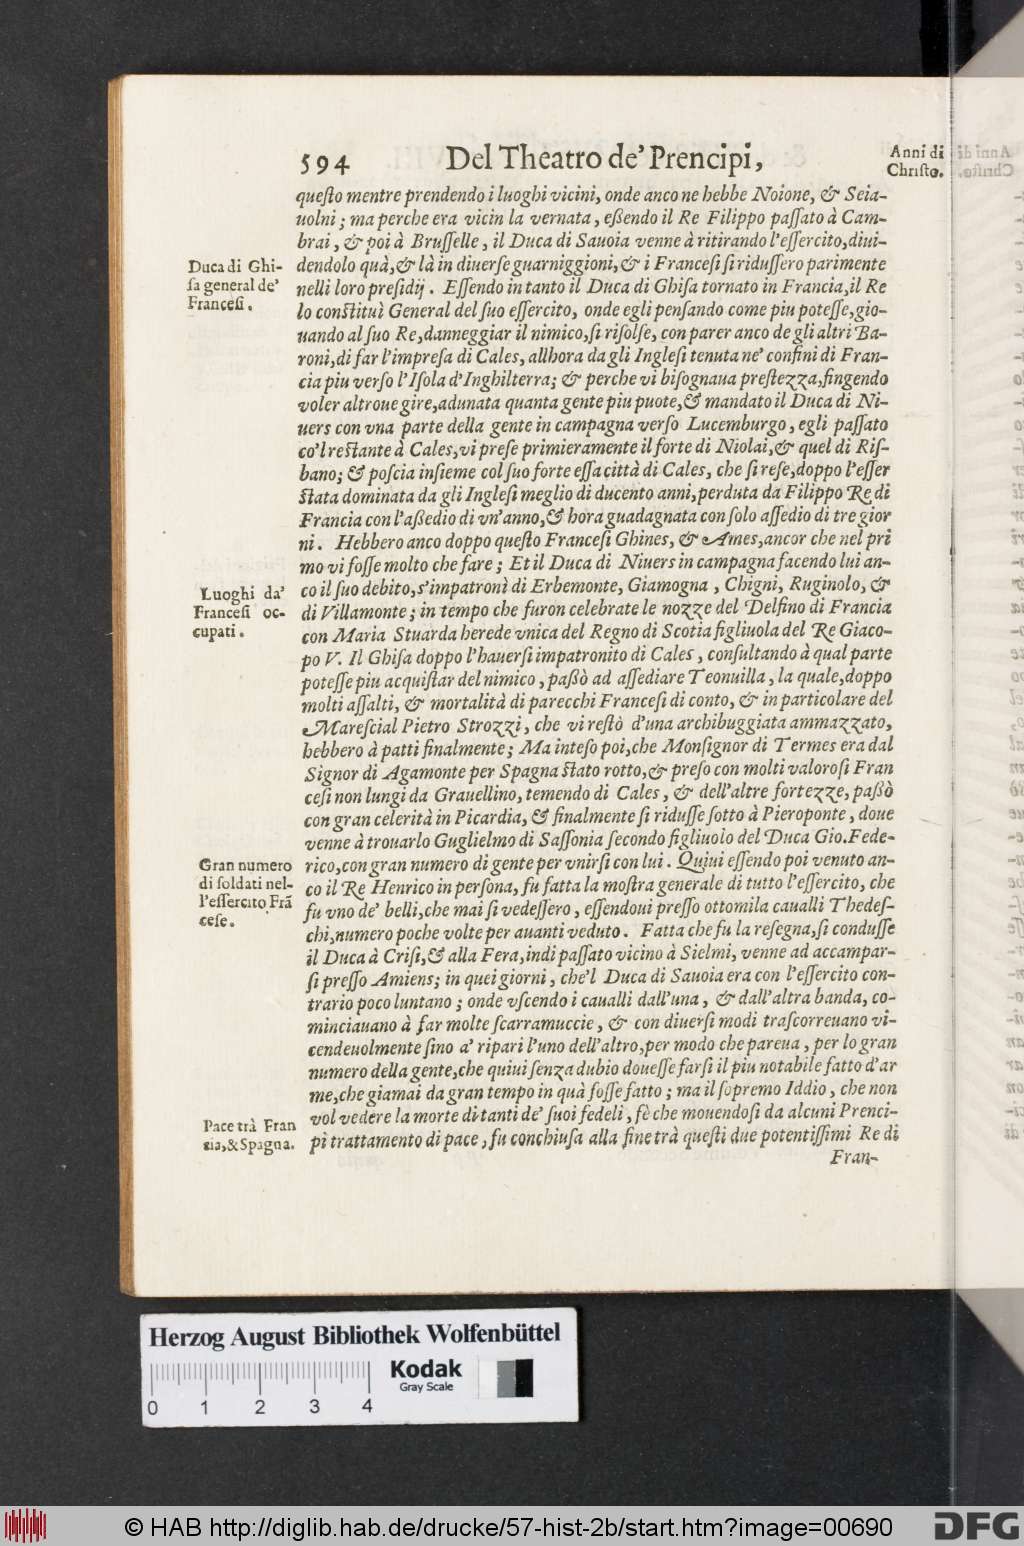 594 Del Theatro de' Prencipi, Anni di
Christo.
queſto mentre prendendo i luoghi vicini, onde anco ne hebbe Noione, & Seia-
uolni; ma perche era vicin la vernata, eßendo il Re Filippo paſſato à Cam-
brai, & poi à Bruſſelle, il Duca di Sauoia venne à ritirando l'eſſercito, diui-
Duca di Ghi-
ſa general de'
Franceſi.
dendolo quà, & là in diuerſe guarniggioni, & i Franceſi ſi riduſſero parimente
nelli loro preſidij. Eſſendo in tanto il Duca di Ghiſa tornato in Francia, il Re
lo conſtituì General del ſuo eſſercito, onde egli penſando come piu poteſſe, gio-
uando al ſuo Re, danneggiar il nimico, ſi riſolſe, con parer anco de gli altri Ba-
roni, di far l'impreſa di Cales, allhora da gli Ingleſi tenuta ne' confini di Fran-
cia piu verſo l'Iſola d'Inghilterra; & perche vi biſognaua preſtezza, fingendo
voler altroue gire, adunata quanta gente piu puote, & mandato il Duca di Ni-
uers con vna parte della gente in campagna verſo Lucemburgo, egli paſſato
co'l reſtante à Cales, vi preſe primieramente il forte di Niolai, & quel di Riſ-
bano; & poſcia inſieme col ſuo forte eſſa città di Cales, che ſi reſe, doppo l'eſſer
ſtata dominata da gli Ingleſi meglio di ducento anni, perduta da Filippo Re di
Francia con l'aßedio di vn'anno, & hora guadagnata con ſolo aſſedio di tre gior
ni. Hebbero anco doppo queſto Franceſi Ghines, & Ames, ancor che nel pri
mo vi foſſe molto che fare; Et il Duca di Niuers in campagna facendo lui an-
Luoghi da'
Franceſi oc-
cupati.
co il ſuo debito, s'impatronì di Erbemonte, Giamogna, Chigni, Ruginolo, &
di Villamonte; in tempo che furon celebrate le nozze del Delfino di Francia
con Maria Stuarda herede vnica del Regno di Scotia figliuola del Re Giaco-
po V. Il Ghiſa doppo l'hauerſi impatronito di Cales, conſultando à qual parte
poteſſe piu acquiſtar del nimico, paßò ad aſſediare Teonuilla, la quale, doppo
molti aſſalti, & mortalità di parecchi Franceſi di conto, & in particolare del
Mareſcial Pietro Strozzi, che vi reſtò d'una archibuggiata ammazzato,
hebbero à patti finalmente; Ma inteſo poi, che Monſignor di Termes era dal
Signor di Agamonte per Spagna ſtato rotto, & preſo con molti valoroſi Fran
ceſi non lungi da Grauellino, temendo di Cales, & dell'altre fortezze, paßò
con gran celerità in Picardia, & finalmente ſi riduſſe ſotto à Pieroponte, doue
venne à trouarlo Guglielmo di Saſſonia ſecondo figliuolo del Duca Gio. Fede-
Gran numero
di ſoldati nel-
l'eſſercito Frã
ceſe.
rico, con gran numero di gente per vnirſi con lui. Quiui eſſendo poi venuto an-
co il Re Henrico in perſona, fu fatta la moſtra generale di tutto l'eſſercito, che
fu vno de' belli, che mai ſi vedeſſero, eſſendoui preſſo ottomila caualli Thedeſ-
chi, numero poche volte per auanti veduto. Fatta che fu la reſegna, ſi conduſſe
il Duca à Criſi, & alla Fera, indi paſſato vicino à Sielmi, venne ad accampar-
ſi preſſo Amiens; in quei giorni, che'l Duca di Sauoia era con l'eſſercito con-
trario poco luntano; onde vſcendo i caualli dall'una, & dall'altra banda, co-
minciauano à far molte ſcarramuccie, & con diuerſi modi traſcorreuano vi-
cendeuolmente ſino a' ripari l'uno dell'altro, per modo che pareua, per lo gran
numero della gente, che quiui ſenza dubio doueſſe farſi il piu notabile fatto d'ar
me, che giamai da gran tempo in quà foſſe fatto; ma il ſopremo Iddio, che non
Pace trà Fran
cia, & Spagna.
vol vedere la morte di tanti de' ſuoi fedeli, fè che mouendoſi da alcuni Prenci-
pi trattamento di pace, fu conchiuſa alla fine trà queſti due potentiſſimi Re di
Fran-
Herzog August Bibliothek Wolfenbüttel
Kodak
Gray Scale
0 1 2 3 4
© HAB http://diglib.hab.de/drucke/57-hist-2b/start.htm?image=00690
DFG